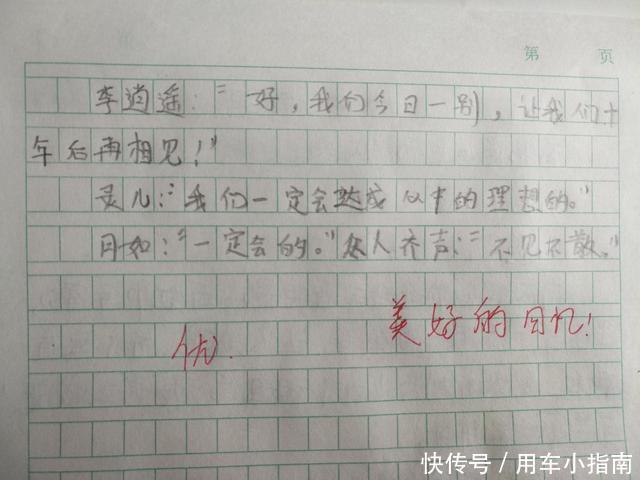 第 页
李逍遥："好，我们今日一别，让我们十
年后再相见！"
灵儿："我们一定会达成心中的理想的。"
月如："一定会的。"众人齐声："不见不散。"
美好的回忆！
优.
快传号／用车小指南